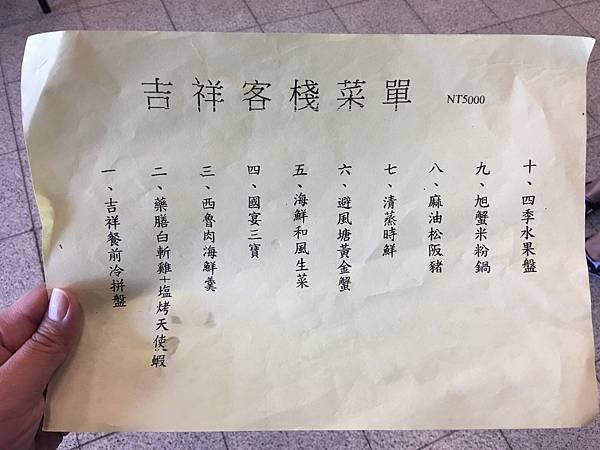 吉祥客棧菜單 NT5000
一、吉祥餐前冷拼盤
二、藥膳白斬雞+塩烤天使蝦
三、西魯肉海鮮羹
四、國宴三寶
五、海鮮和風生菜
六、避風塘黃金蟹
七、清蒸時鮮
八、麻油松阪豬
九、旭蟹米粉鍋
十、四季水果盤